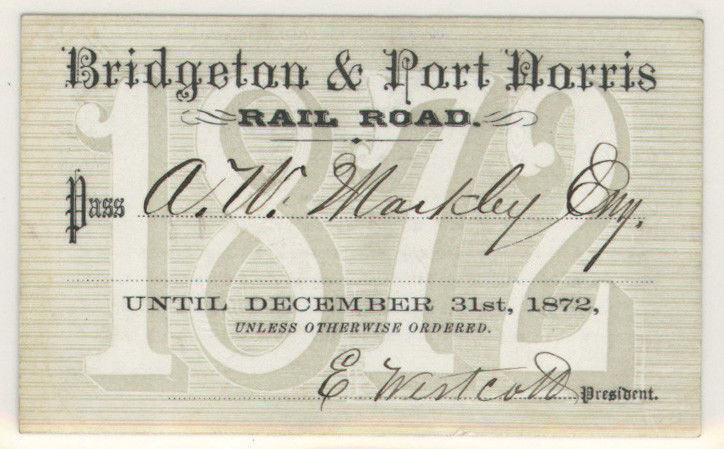 Bridgeton & Port Norris
RAIL ROAD.
Pass A. W. Markley Esq.
UNTIL DECEMBER 31st, 1872,
UNLESS OTHERWISE ORDERED.
E Westcott President.
1872